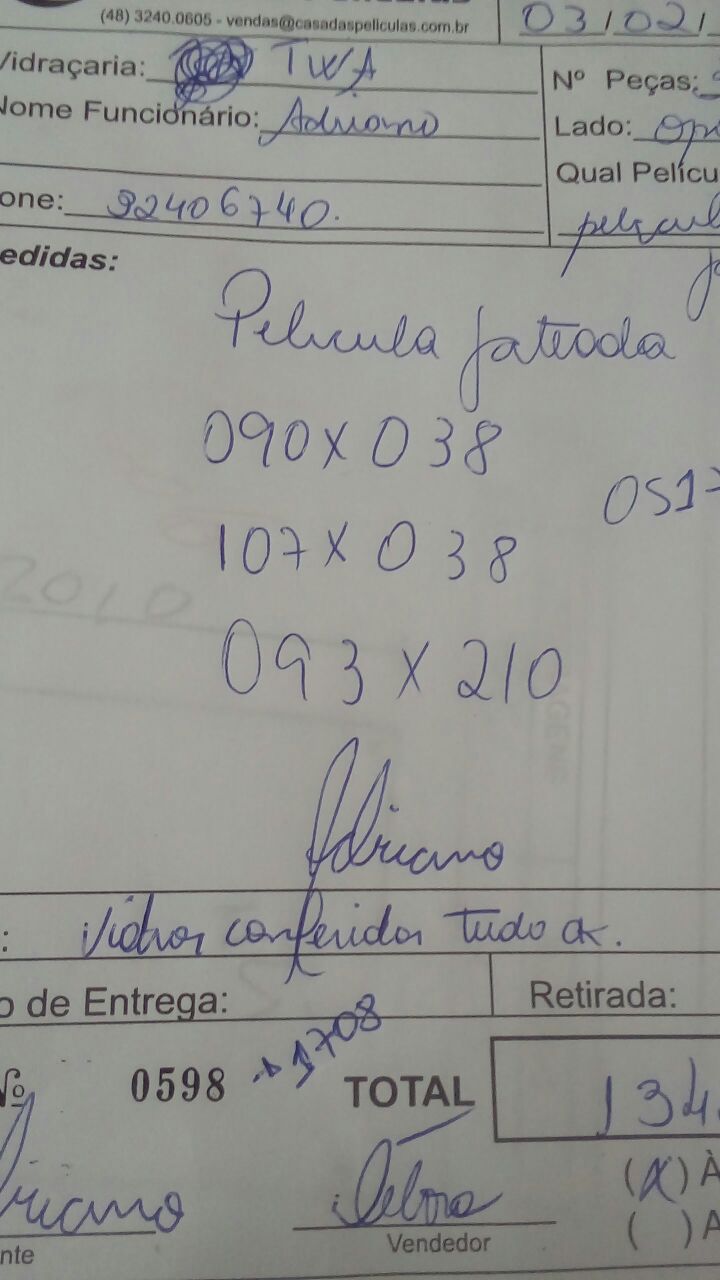 (48) 3240.0605 - vendas@casadaspeliculas.com.br
03/02/
Vidraçaria: TWA
Nº Peças:
Nome Funcionário: Adriano
Lado:
Qual Pelícu
one: 92406740.
pelicul
edidas:
Pelicula jateada
090 X 038
051
107 X 038
2010
093 X 210
Adriano
: Vidros conferidos tudo ok.
o de Entrega:
Retirada:
Nº 0598 1708
TOTAL 134
riano
Débora
(X) À
( ) A
nte
Vendedor